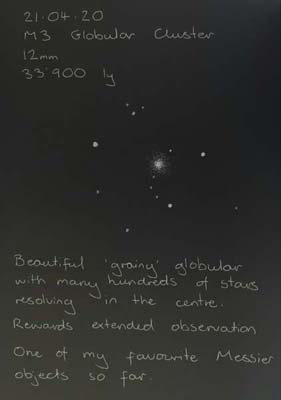 21.04.20
M3 Globular Cluster
12mm
33'900 ly
Beautiful 'grainy' globular
with many hundreds of stars
resolving in the centre.
Rewards extended observation
One of my favourite Messier
objects so far.